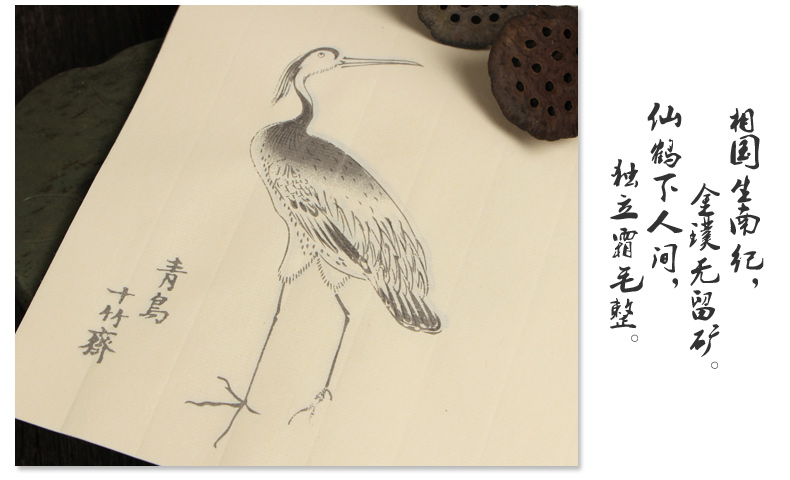 相国生南纪，
金璞无留矿。
仙鹤下人间，
独立霜毛整。
青鸟
十竹斋